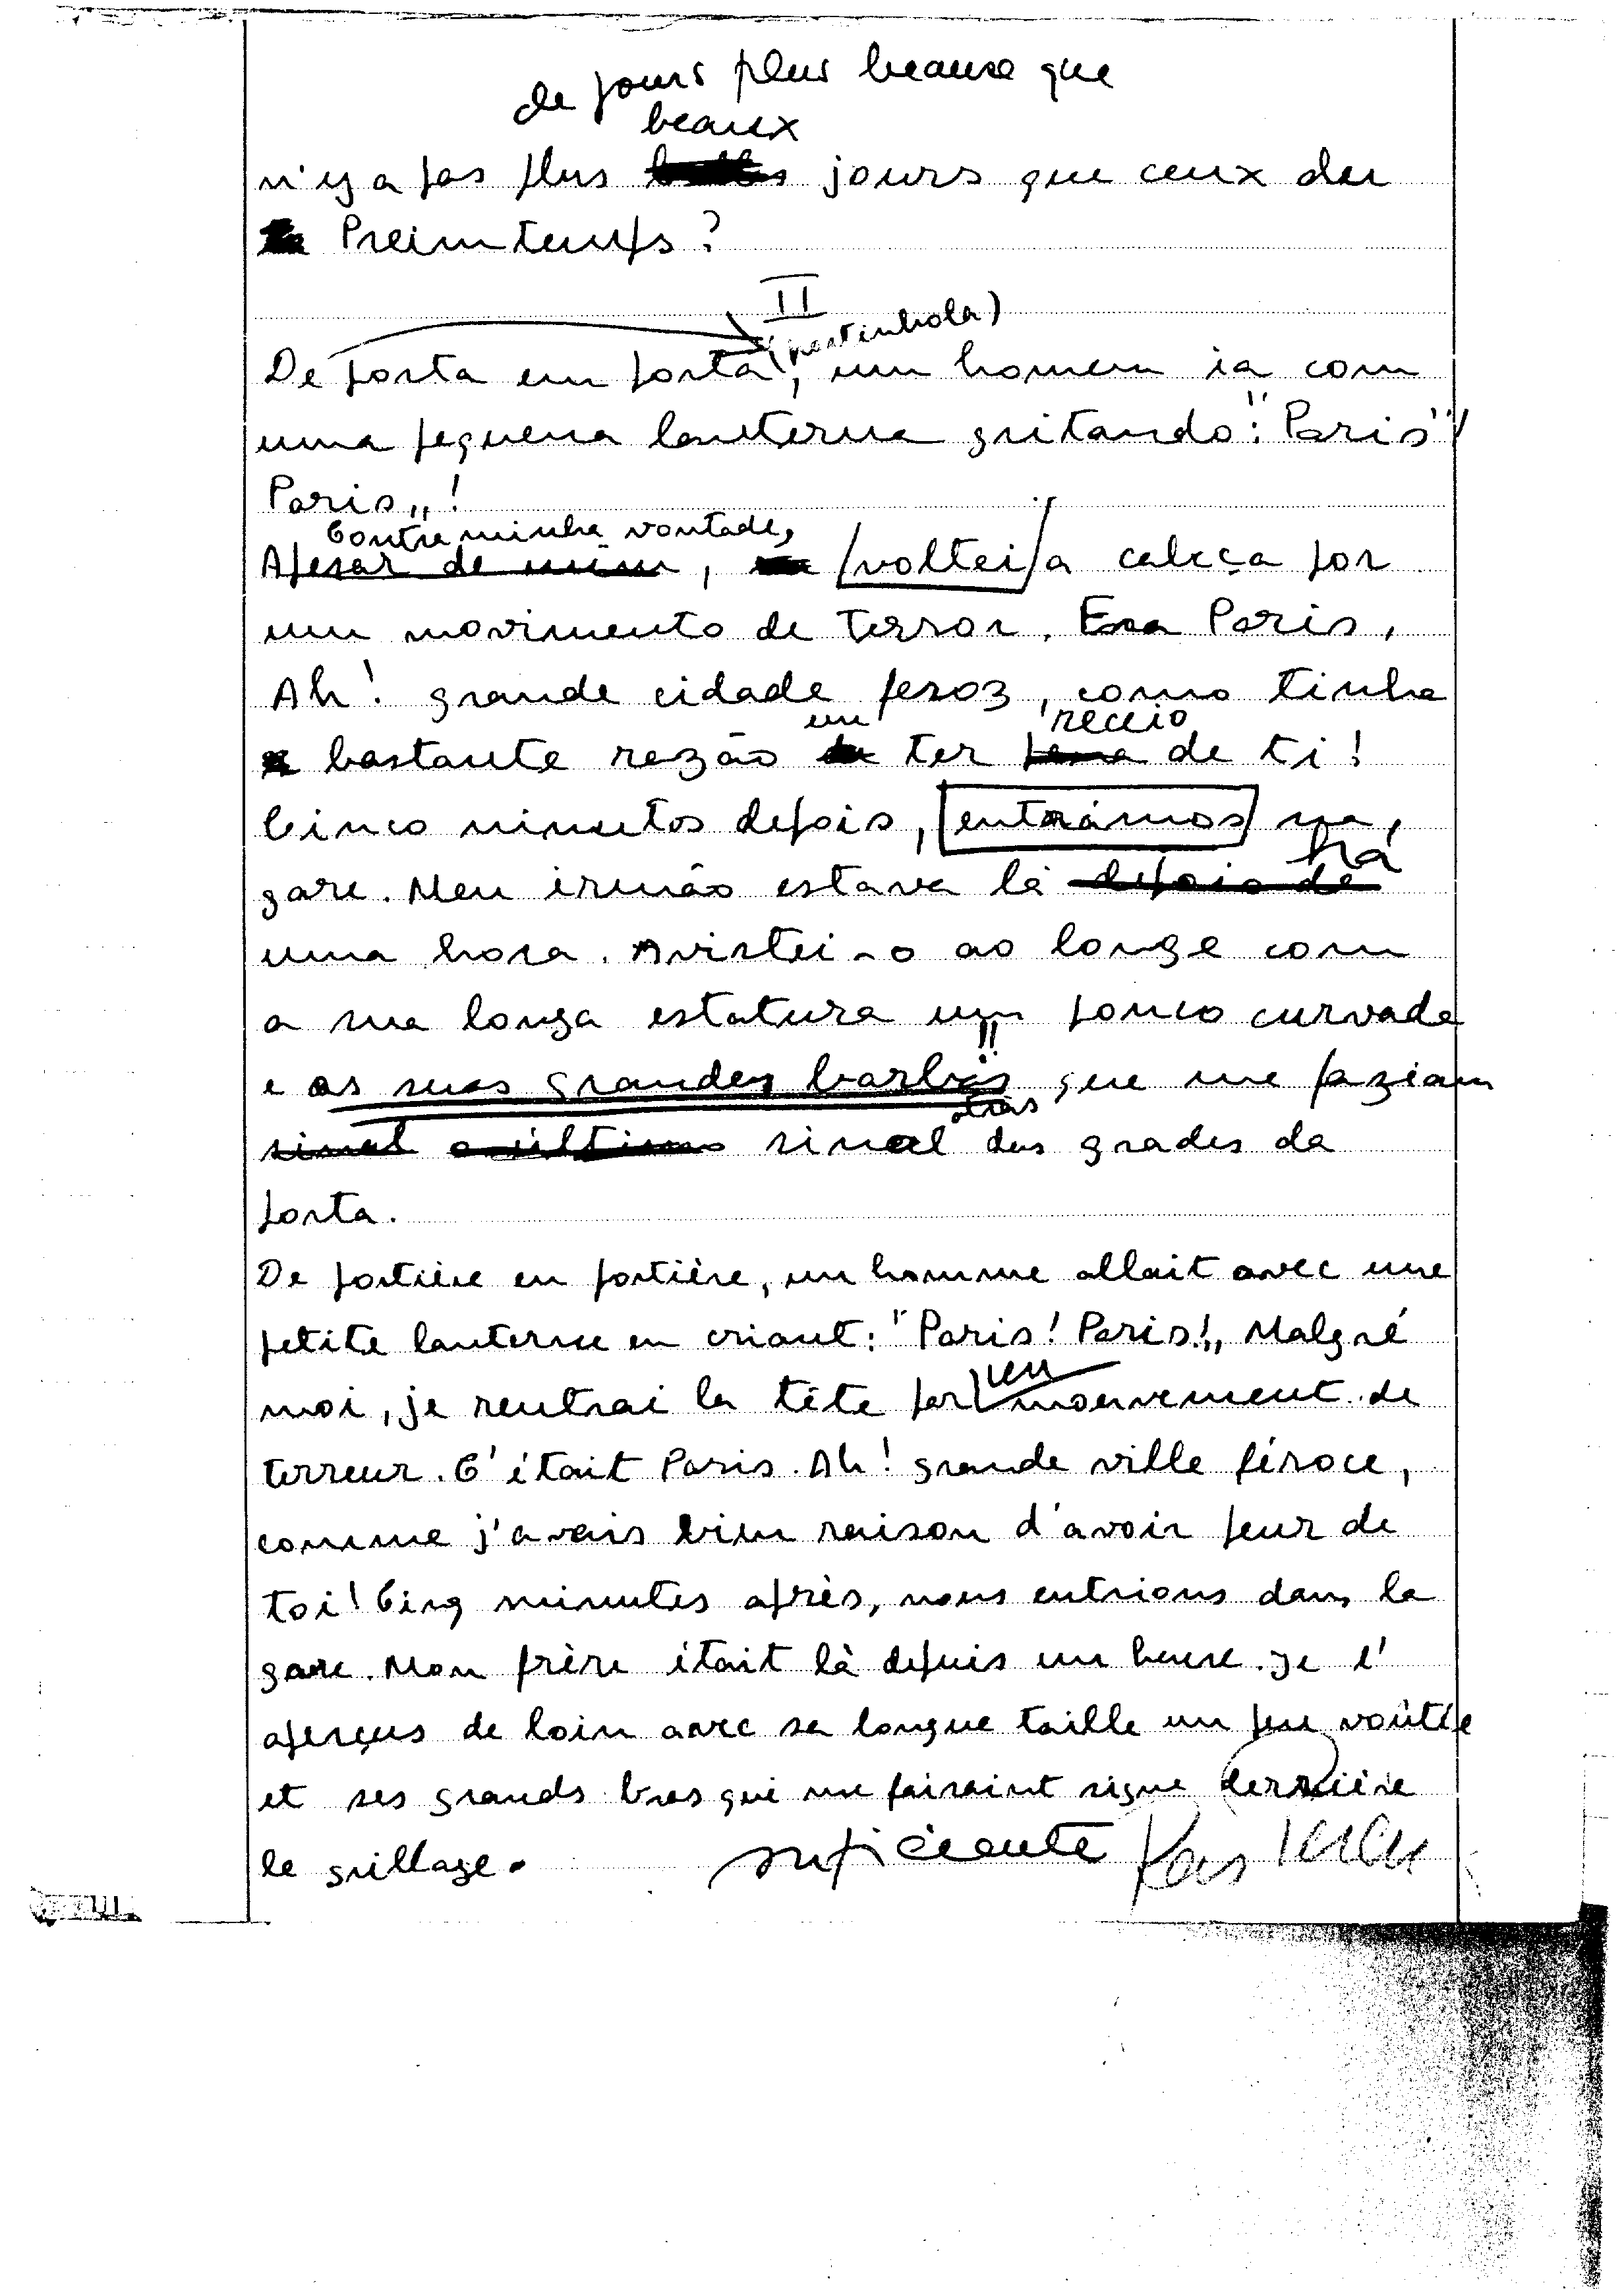 de jours plus beause que
beaux
n'y a pas plus jours que ceux du
Preimtemps?
II
(portinhola)
De porta em porta, um homem ia com
uma pequena lanterna gritando: "Paris"!
Paris„!
Contra minha vontade,
Apesar de mim, voltei a cabeça por
um movimento de terror. Era Paris,
Ah! grande cidade feroz, como tinha
em receio
bastante rezão de ter pena de ti!
Cinco minutos depois, entrámos na
há
gare. Meu irmão estava lá depois de
uma hora. Avistei-o ao longe com
a sua longa estatura um pouco curvada
e as suas grandes barbas que me faziam
atrás
sinal o último sinal das grades da
porta.
De portière en portière, un homme allait avec une
petite lanterne en criant: "Paris! Paris!„ Malgré
un
moi, je rentrai la tête par mouvement de
terreur. C'était Paris. Ah! grande ville féroce,
comme j'avais bien raison d'avoir peur de
toi! Cinq minutes après, nous entrions dans la
gare. Mon frère était là depuis un heure. Je l'
aperçus de loin avec sa longue taille un peu voûtée
et ses grands bras qui me faisaint signe derrière
le grillage.
suficiente